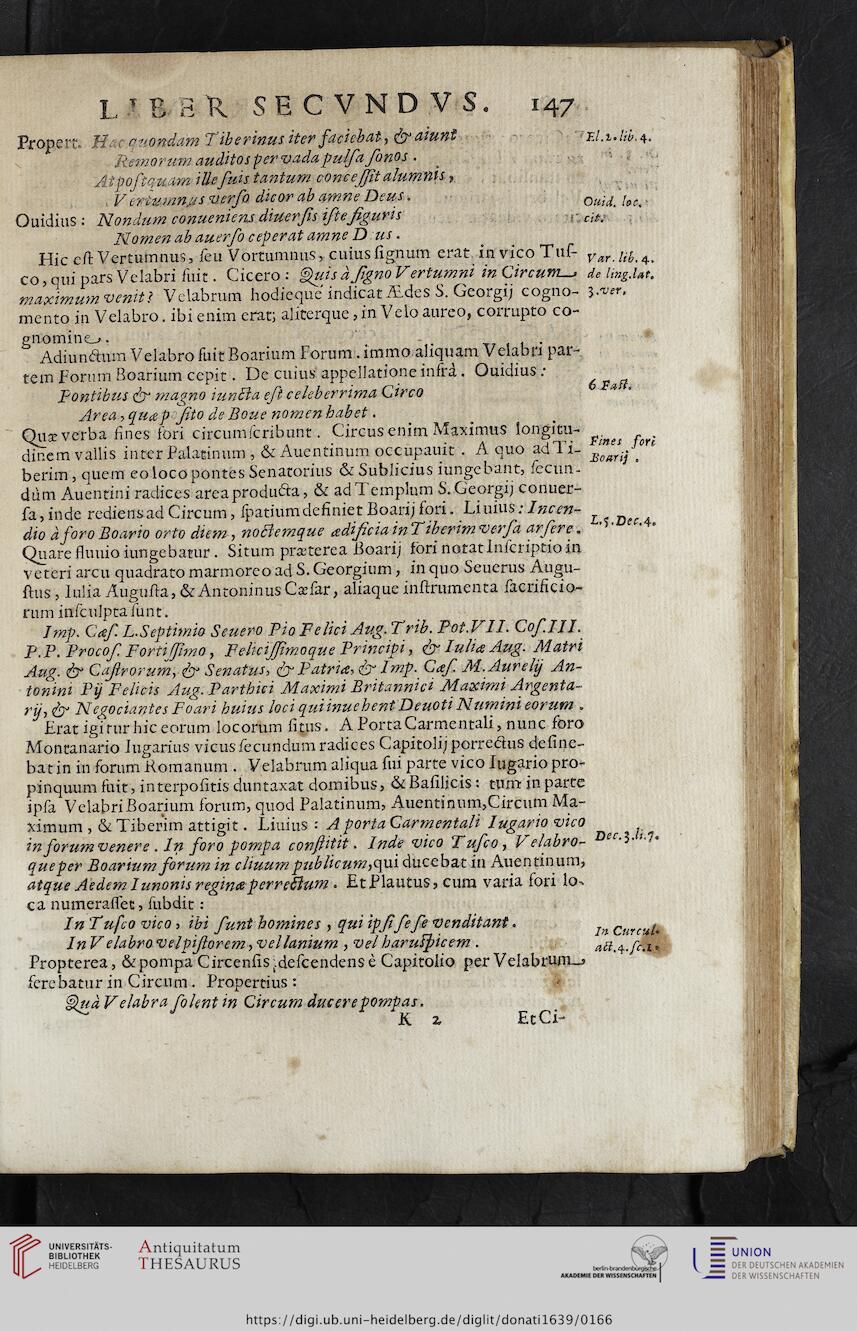 LIBER SECVNDVS. 147
Propert. Hac quondam Tiberinus iter faciebat, & aiunt
El. 2. lib. 4.
Remorum auditos per vada pulſa ſonos.
At poſtquam ille ſuis tantum conceſſit alumnis,
Vertumnus verſo dicor ab amne Deus.
Ouid. loc.
Ouidius: Nondum conueniens diuerſis iſte figuris
cit.
Nomen ab auerſo ceperat amne D us.
Hic eſt Vertumnus, ſeu Vortumnus, cuius ſignum erat in vico Tuſ-
Var. lib. 4.
co, qui pars Velabri fuit. Cicero: Quis à ſigno Vertumni in Circum
de ling. lat.
maximum venit? Velabrum hodieque indicat Ædes S. Georgij cogno-
3. ver.
mento in Velabro. ibi enim erat; aliterque, in Velo aureo, corrupto co-
gnomine.
Adiunctum Velabro fuit Boarium Forum. immo aliquam Velabri par-
tem Forum Boarium cepit. De cuius appellatione infrà. Ouidius:
Pontibus & magno iuncta eſt celeberrima Circo
6 Faſt.
Area, quæ poſito de Boue nomen habet.
Quæ verba fines fori circumſcribunt. Circus enim Maximus longitu-
Fines fori
dinem vallis inter Palatinum, & Auentinum occupauit. A quo ad Ti-
Boarij.
berim, quem eo loco pontes Senatorius & Sublicius iungebant, ſecun-
dùm Auentini radices area producta, & ad Templum S. Georgij conuer-
ſa, inde rediens ad Circum, ſpatium definiet Boarij fori. Liuius: Incen-
L. 5. Dec. 4.
dio à foro Boario orto diem, noctemque ædificia in Tiberim verſa arſere.
Quare fluuio iungebatur. Situm præterea Boarij fori notat Inſcriptio in
veteri arcu quadrato marmoreo ad S. Georgium, in quo Seuerus Augu-
ſtus, Iulia Auguſta, & Antoninus Cæſar, aliaque inſtrumenta ſacrificio-
rum inſculpta ſunt.
Imp. Cæſ. L. Septimio Seuero Pio Felici Aug. Trib. Pot. VII. Coſ. III.
P. P. Procoſ. Fortiſſimo, Feliciſſimoque Principi, & Iuliæ Aug. Matri
Aug. & Caſtrorum, & Senatus, & Patriæ, & Imp. Cæſ. M. Aurelij An-
tonini Pij Felicis Aug. Parthici Maximi Britannici Maximi Argenta-
rij, & Negociantes Foari huius loci qui inuehent Deuoti Numini eorum.
Erat igitur hic eorum locorum ſitus. A Porta Carmentali, nunc foro
Montanario Iugarius vicus ſecundum radices Capitolij porrectus deſine-
bat in in forum Romanum. Velabrum aliqua ſui parte vico Iugario pro-
pinquum fuit, interpoſitis duntaxat domibus, & Baſilicis: tum in parte
ipſa Velabri Boarium forum, quod Palatinum, Auentinum, Circum Ma-
ximum, & Tiberim attigit. Liuius: A porta Carmentali Iugario vico
in forum venere. In foro pompa conſtitit. Inde vico Tuſco, Velabro-
Dec. 3. li. 7.
que per Boarium forum in cliuum publicum, qui ducebat in Auentinum,
atque Aedem Iunonis reginæ perrectum. Et Plautus, cum varia fori lo-
ca numeraſſet, ſubdit:
In Tuſco vico, ibi ſunt homines, qui ipſi ſeſe venditant.
In Curcul.
In Velabro vel piſtorem, vel lanium, vel haruſpicem.
act. 4. ſc. 1.
Propterea, & pompa Circenſis, deſcendens è Capitolio per Velabrum
ferebatur in Circum. Propertius:
Quà Velabra ſolent in Circum ducere pompas.
K 2 Et Ci-
UNIVERSITÄTS-
BIBLIOTHEK
HEIDELBERG
Antiquitatum
THESAURUS
berlin-brandenburgische
AKADEMIE DER WISSENSCHAFTEN
UNION
DER DEUTSCHEN AKADEMIEN
DER WISSENSCHAFTEN
https://digi.ub.uni-heidelberg.de/diglit/donati1639/0166